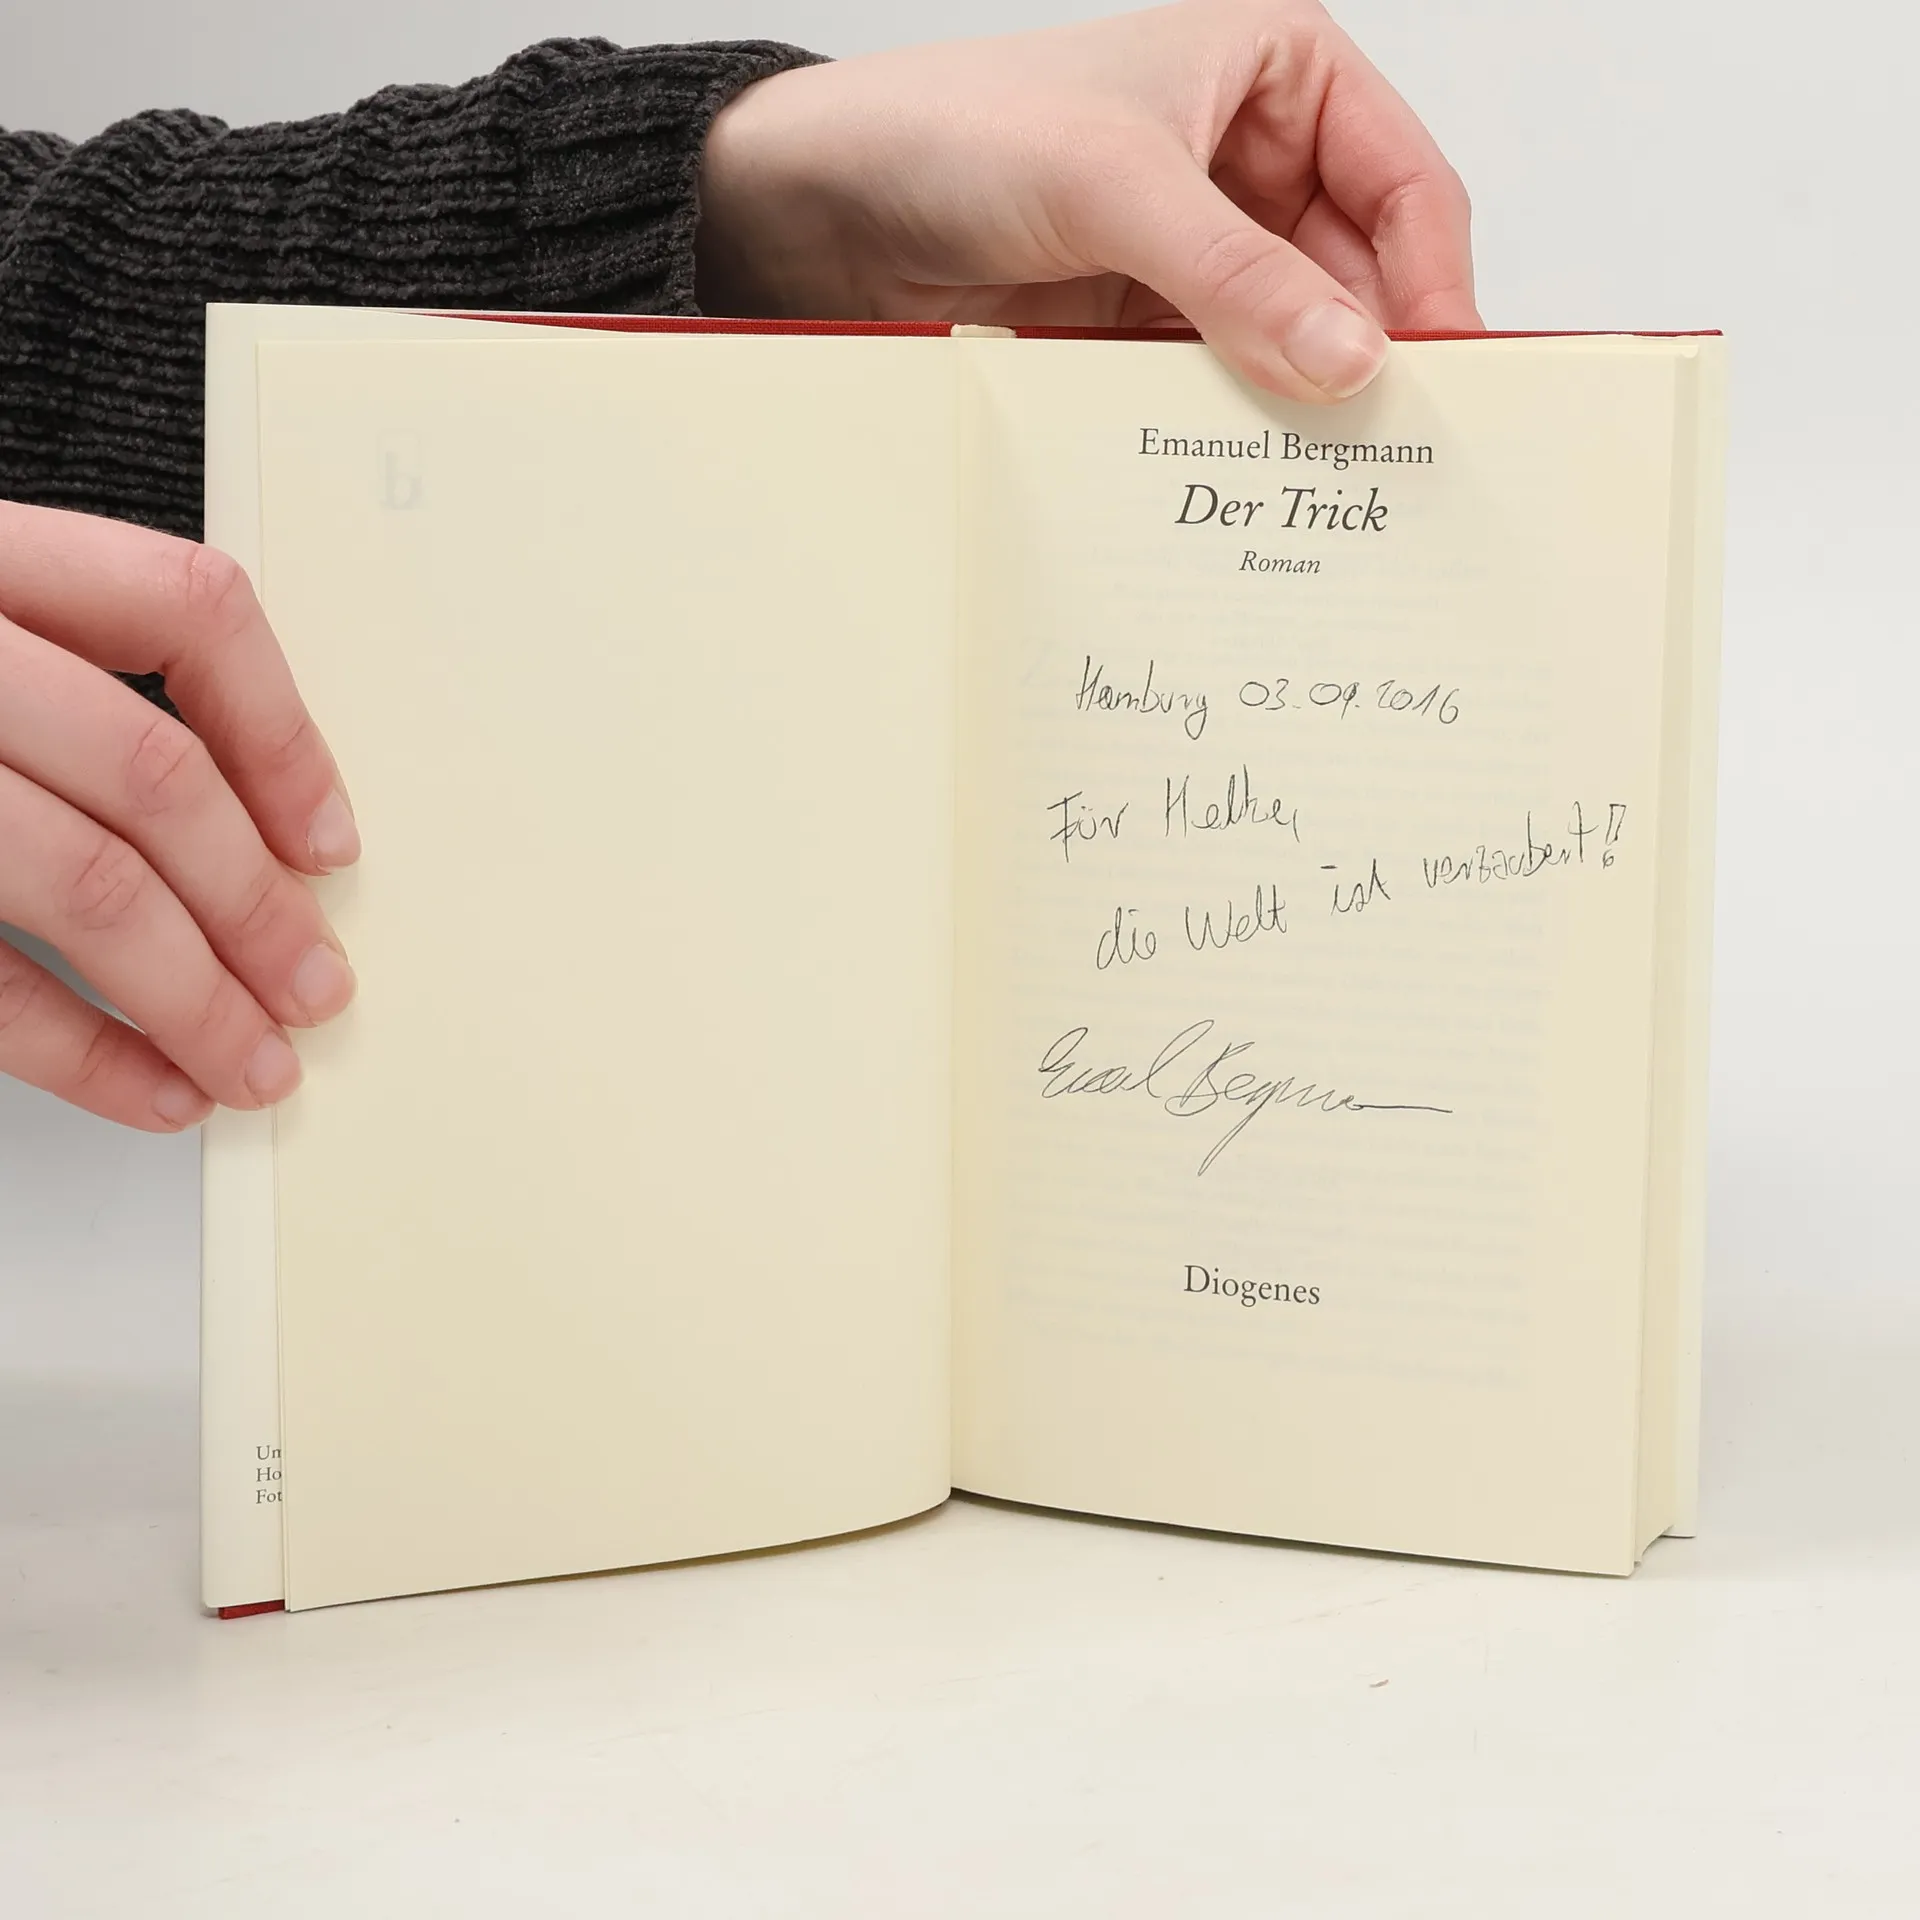 Emanuel Bergmann
Der Trick
Roman
Hamburg 03.09.2016
Für Helke,
die Welt ist verzaubert!
Emanuel Bergmann
Diogenes
Um
Ho
Fot